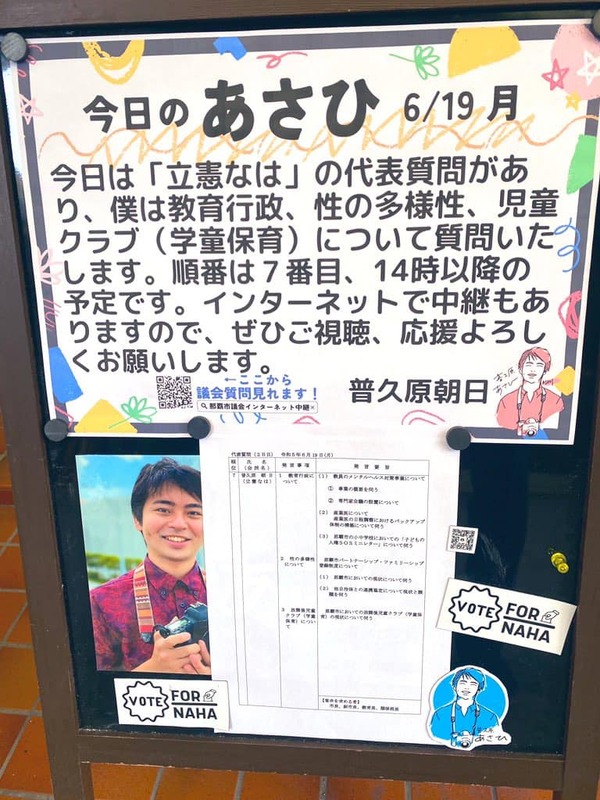 今日の あさひ 6/19 月
今日は「立憲なは」の代表質問があ
り、僕は教育行政、性の多様性、児童
クラブ（学童保育）について質問いた
します。順番は７番目、14時以降の
予定です。インターネットで中継もあ
りますので、ぜひご視聴、応援よろし
くお願いします。
←ここから
議会質問見れます！
那覇市議会インターネット中継×
普久原朝日
普久原
あさひ
代表質問（2日目） 令和5年6月19日(月)
順位 氏名（会派名） 発言事項 発言要旨
7 普久原 朝日（立憲なは）
1 教育行政について
(1) 教員のメンタルヘルス対策事業について
① 事業の概要を問う
② 専門家会議の設置について
(2) 産業医について
産業医の公衆
体制の構築について問う
(3) 那覇市の小中学校においての「子どもの
人権SOSミニレター」について問う
2 性の多様性について
那覇市パートナーシップ・ファミリーシップ
登録制度について
(1) 那覇市においての現状について問う
(2) 他自治体との連携協定について現状と課
題を問う
3 放課後児童クラブ（学童保育）について
那覇市においての放課後児童クラブ（学童保
育）の現状について問う
【答弁を求める者】
市長、副市長、教育長、関係部長
VOTE FOR NAHA
VOTE FOR NAHA
あさひ